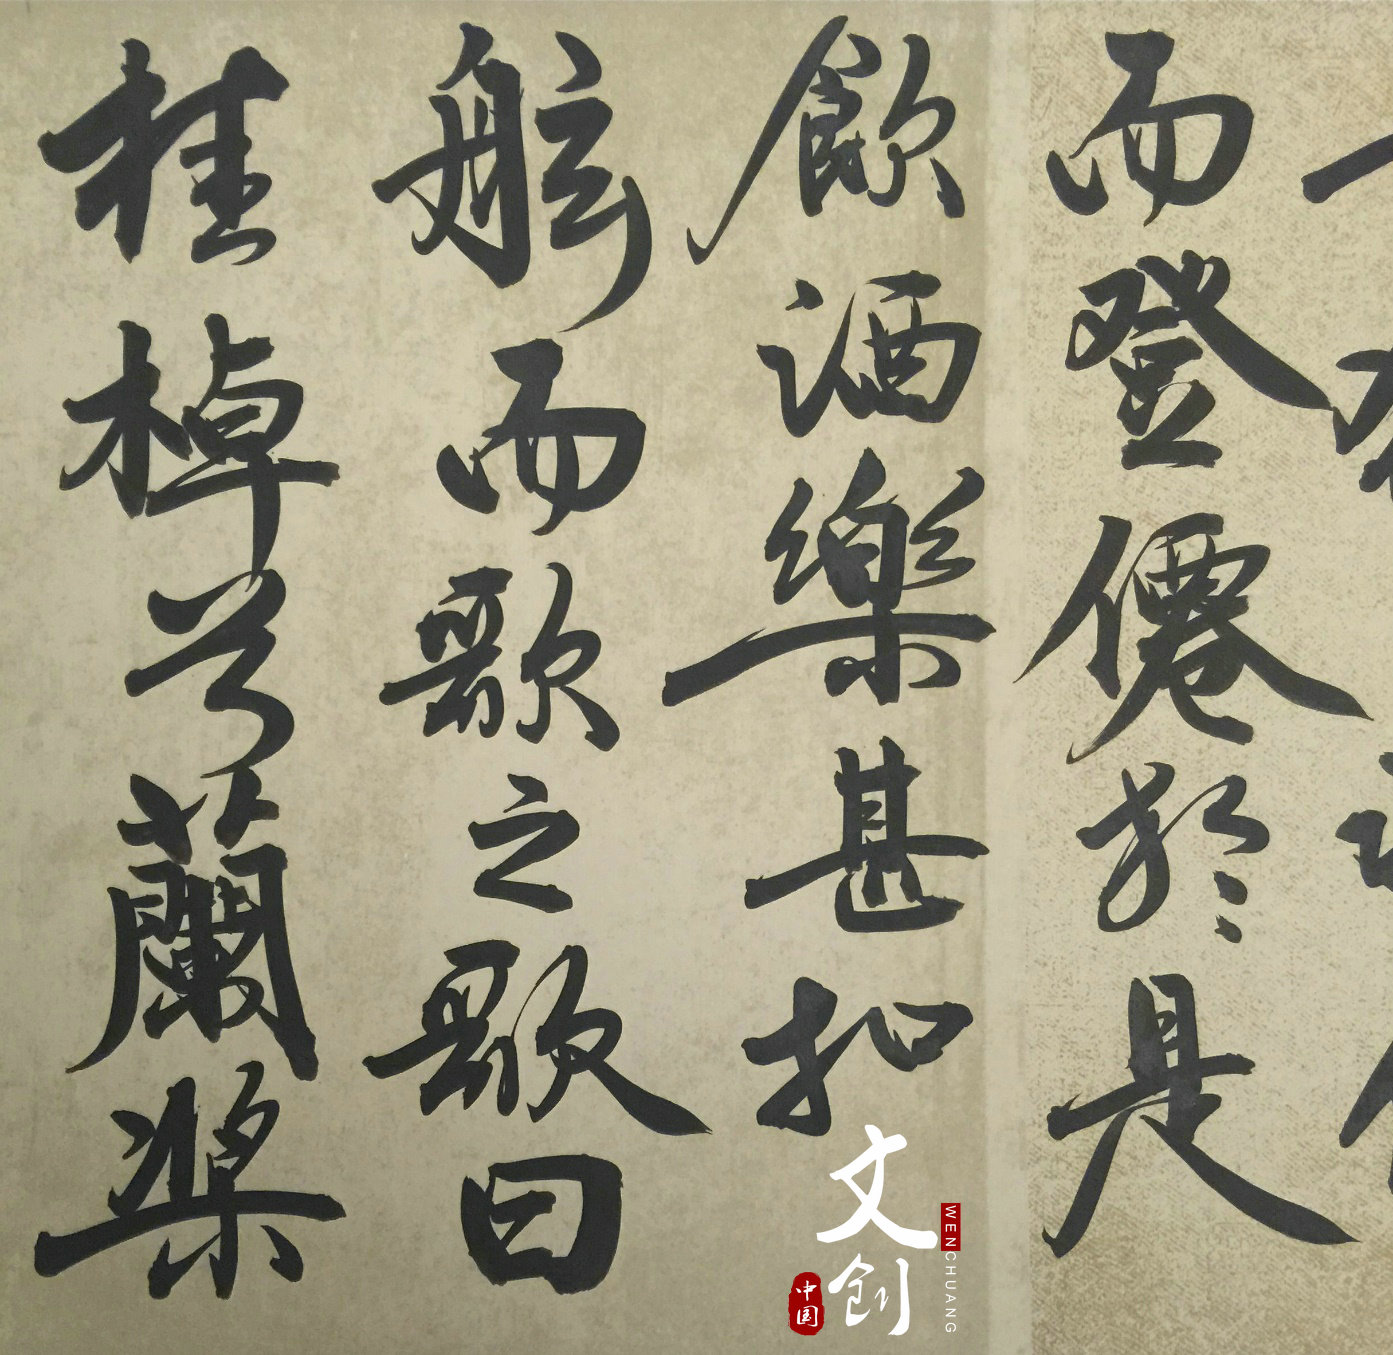 而登僊於是
飲酒樂甚扣
舷而歌之歌曰
桂棹兮蘭槳
文创
WENCHUANG
中国